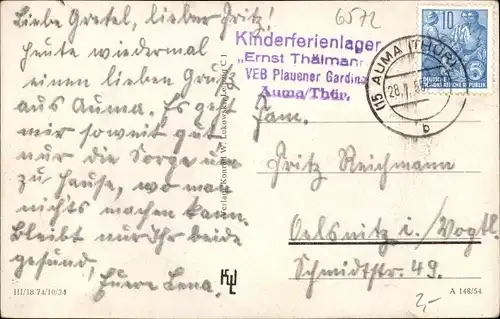 Liebe Gretel, lieber Fritz!
Heute wiedermal
einen lieben Gruß
aus Auma. Es geht
mir soweit gut
nur die Sorge um
zu Hause, wo man
nichts machen kann.
Bleibt nur Ihr beide
gesund, Euere Lena.
6572
Kinderferienlager
„Ernst Thälmann
VEB Plauener Gardine
Auma/Thür.
10
DEUTSCHE
DEMOKRATISCHE REPUBLIK
(15) AUMA (THÜR)
b
Fam.
Fritz Reichmann
Oelsnitz i./Vogtl.
Schmidtstr. 49.
KWL
III/18/74/10/34
A 148/54
2,-